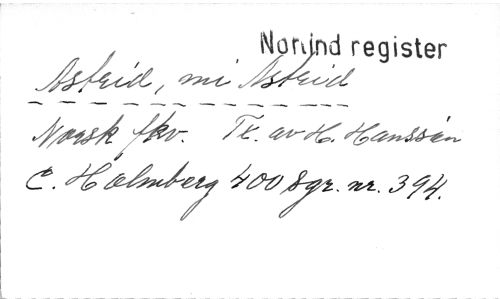 Norsind register
Astrid, mi Astrid
Norsk fkv. Tx. av H. Hanssen
C. Holmberg 400 sgr. nr. 394.